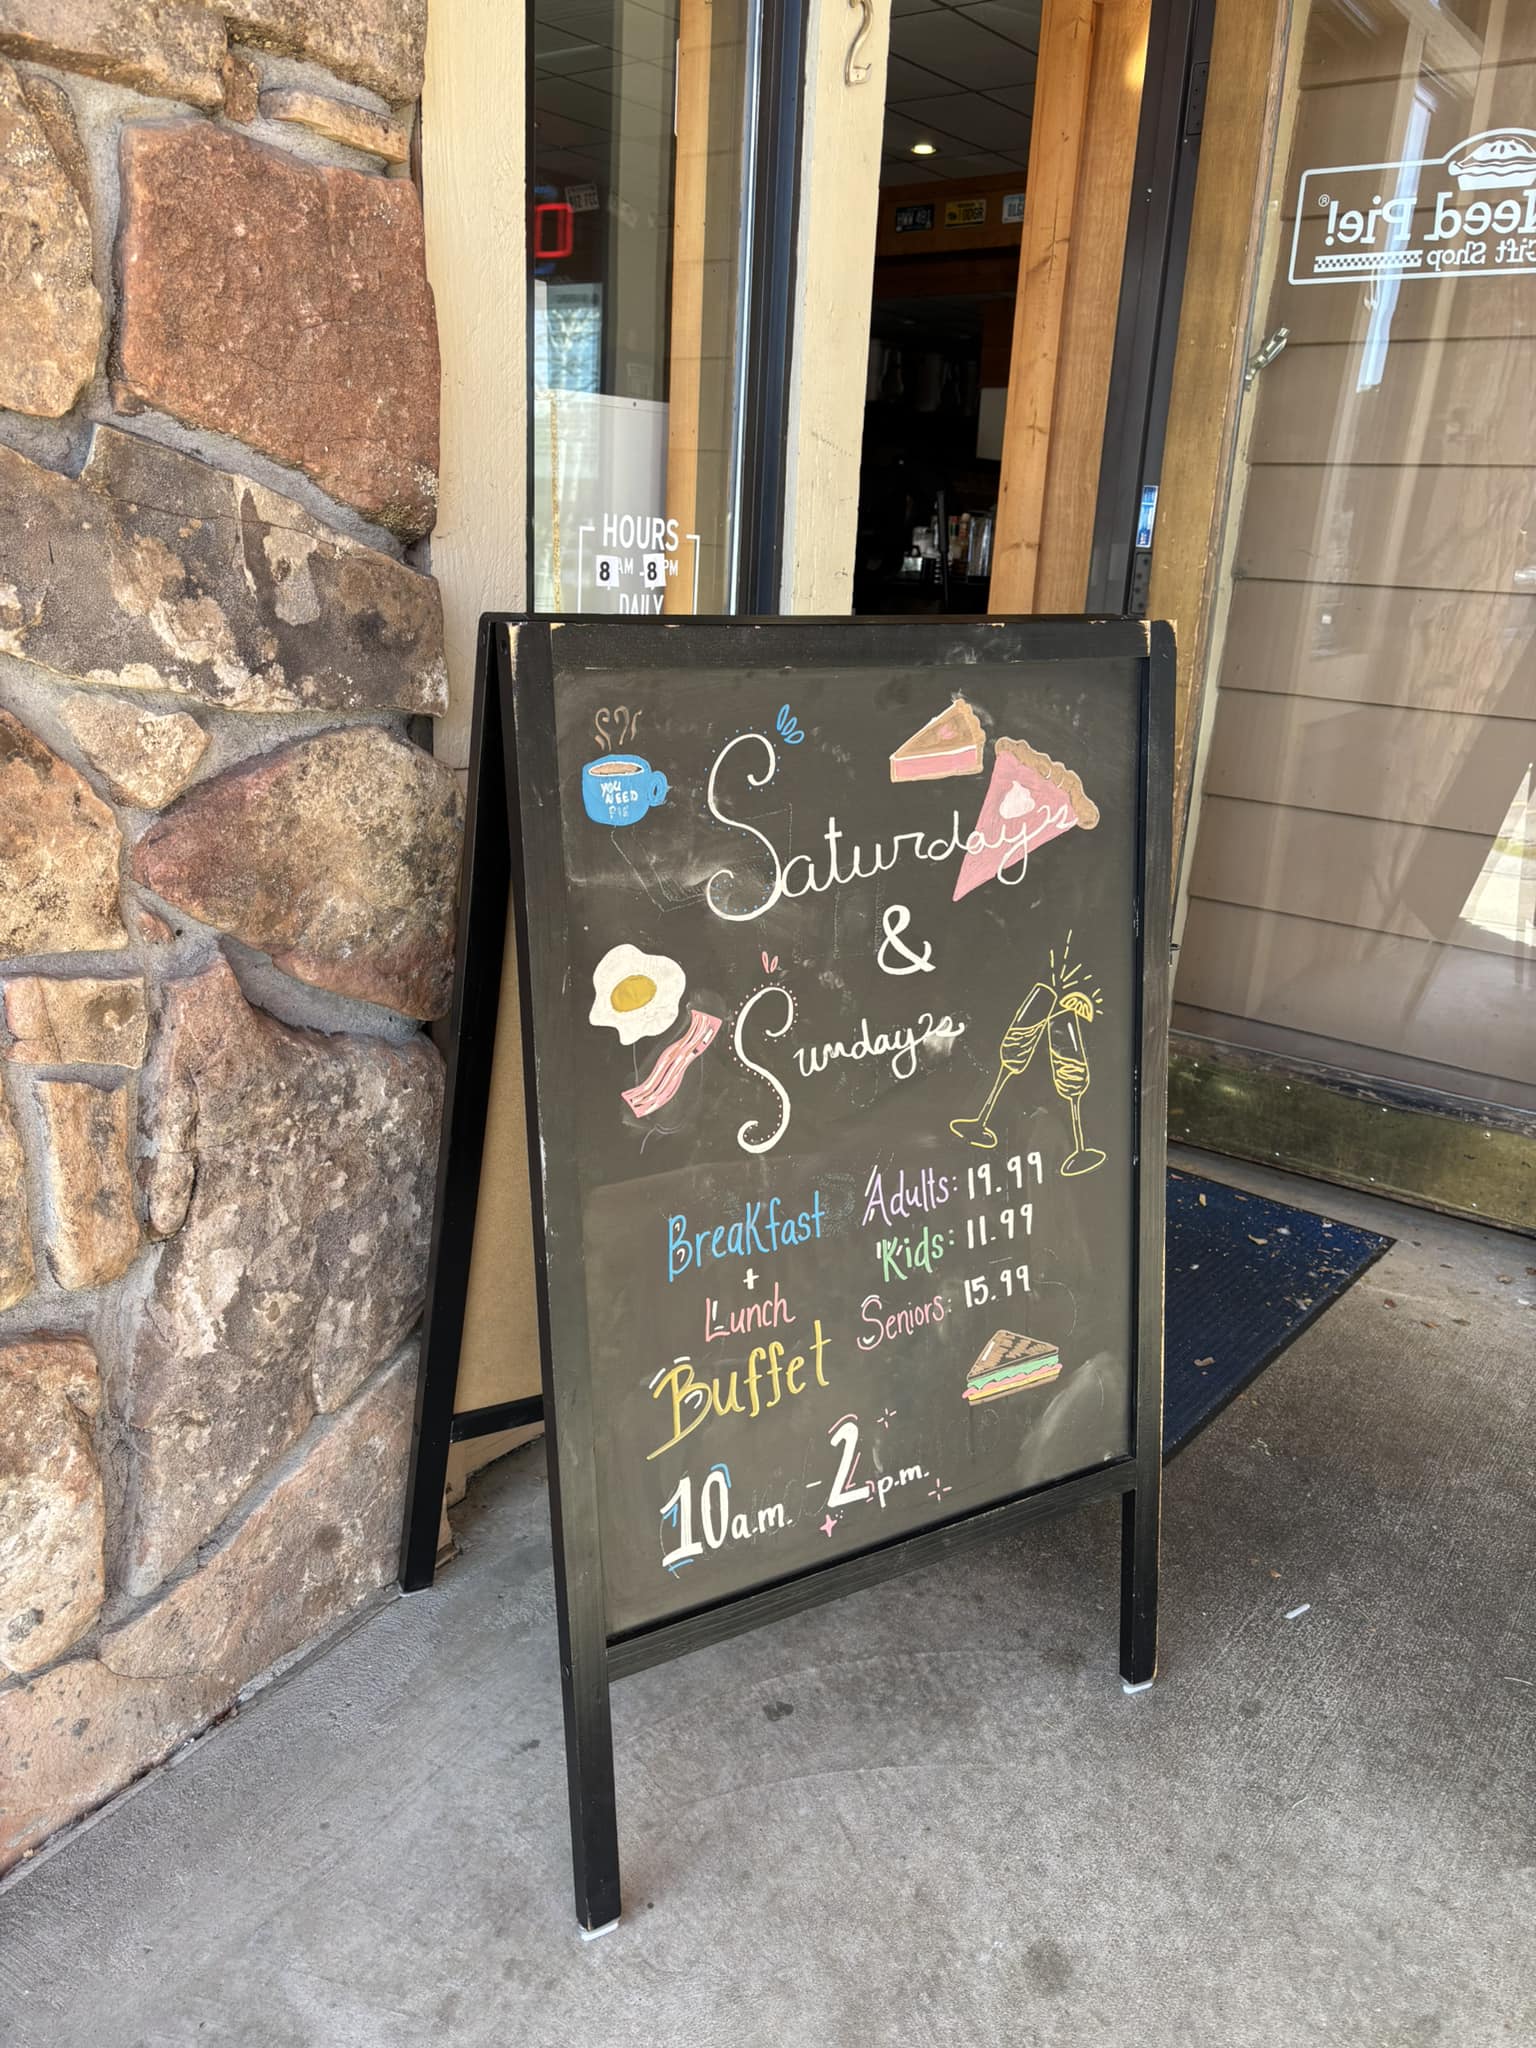 2
HOURS
8 AM - 8 PM
DAILY
Need Pie!®
Gift Shop
YOU
NEED
PIE
Saturday's
&
Sunday's
Breakfast
+
Lunch
Buffet
Adults: 19.99
Kids: 11.99
Seniors: 15.99
10a.m. - 2p.m.